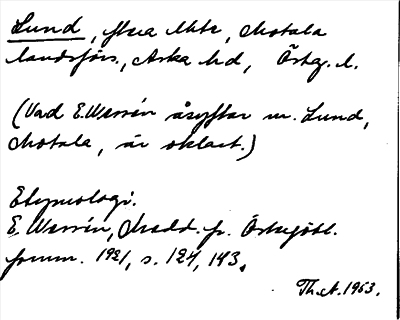 Lund, flera ställen, Motala
landsförs., Aska hd, Östg. l.
(Vad E. Wessén åsyftar m. Lund,
Motala, är oklart.)
Etymologi.
E. Wessén, Medd. fr. Östergötl.
fornm. 1921, s. 124, 143.
Th. A. 1963.